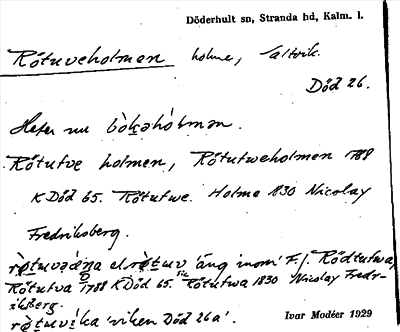 Döderhult sn, Stranda hd, Kalm. l.
Rötuveholmen holme, Saltvik.
Död 26.
Heter nu bò̀kəhólmən.
Rötutve holmen, Rötutweholmen 1788
KDöd 65. Rötutwe. Holme 1830 Nicolay
Fredriksberg.
rø̀tuvəáŋa el. rø̀tuv 'äng inom' F./. Rödtutwa,
Rötutva 1788 KDöd 65. Rötutwa 1830 Nicolay Fredr-
iksberg.
rø̀tuvíka 'viken Död 26a'.
Ivar Modéer 1929